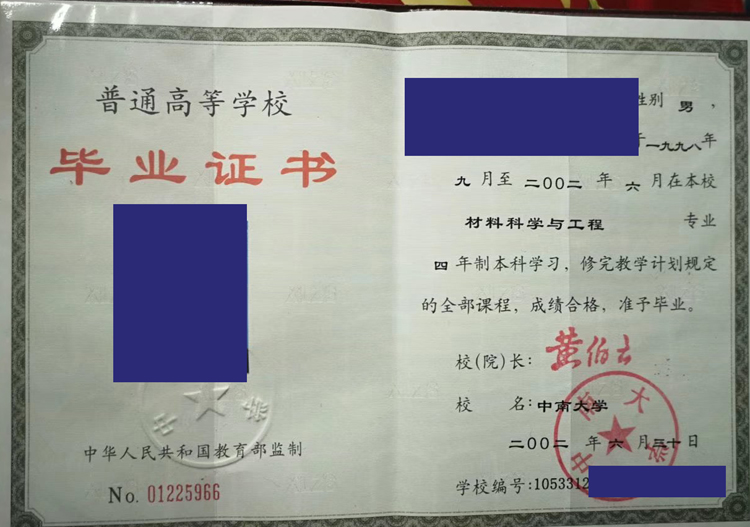 普通高等学校
毕业证书
中华人民共和国教育部监制
No. 01225966
性别 男，
于一九九八年
九 月至 二〇〇二 年 六 月在本校
材料科学与工程 专业
四 年制本科学习，修完教学计划规定
的全部课程，成绩合格，准予毕业。
校(院)长：黄伯云
校 名：中南大学
二〇〇二 年 六 月 三十 日
学校编号：1053312
中南大学